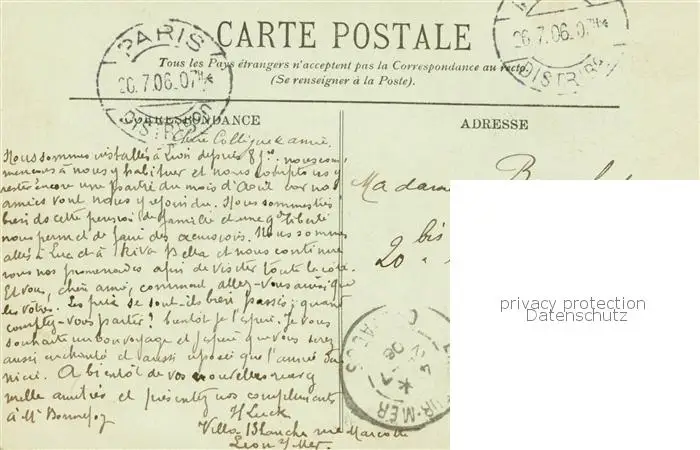 CARTE POSTALE
Tous les Pays étrangers n'acceptent pas la Correspondance au recto.
(Se renseigner à la Poste).
PARIS
26.7.06.07H
DISTRIB
26.7.06.07
DISTRIB
CORRESPONDANCE
ADRESSE
Chère Collègue & amie,
Nous sommes installés à Lion depuis 8 jrs. nous com
mençons à nous y habituer et nous comptons y
rester encore une partie du mois d'Août car nos
amies vont nous y rejoindre. Nous sommes très
bien ds cette pension de famille et une gde liberté
nous permet de faire des excursions. Nous sommes
allés à Luc et à Riva Bella et nous continuerons
nos promenades afin de visiter toute la côte.
Et vous, chère amie, comment allez-vous ainsi que
les vôtres. Les prix se sont-ils bien passés ; quand
comptez-vous partir ? bientôt je l'espère. Je vous
souhaite un bon voyage et j'espère que vous serez
aussi enchantée et aussi reposée que l'année der
nière. A bientôt de vos nouvelles recevez
mille amitiés et présentez nos compliments
à Mr Bonnefoy
H Luck
Villa Blanche rue Marcotte
Lion s/ Mer.
Madame
20 bis
SUR-MER
CALVADOS
privacy protection
Datenschutz